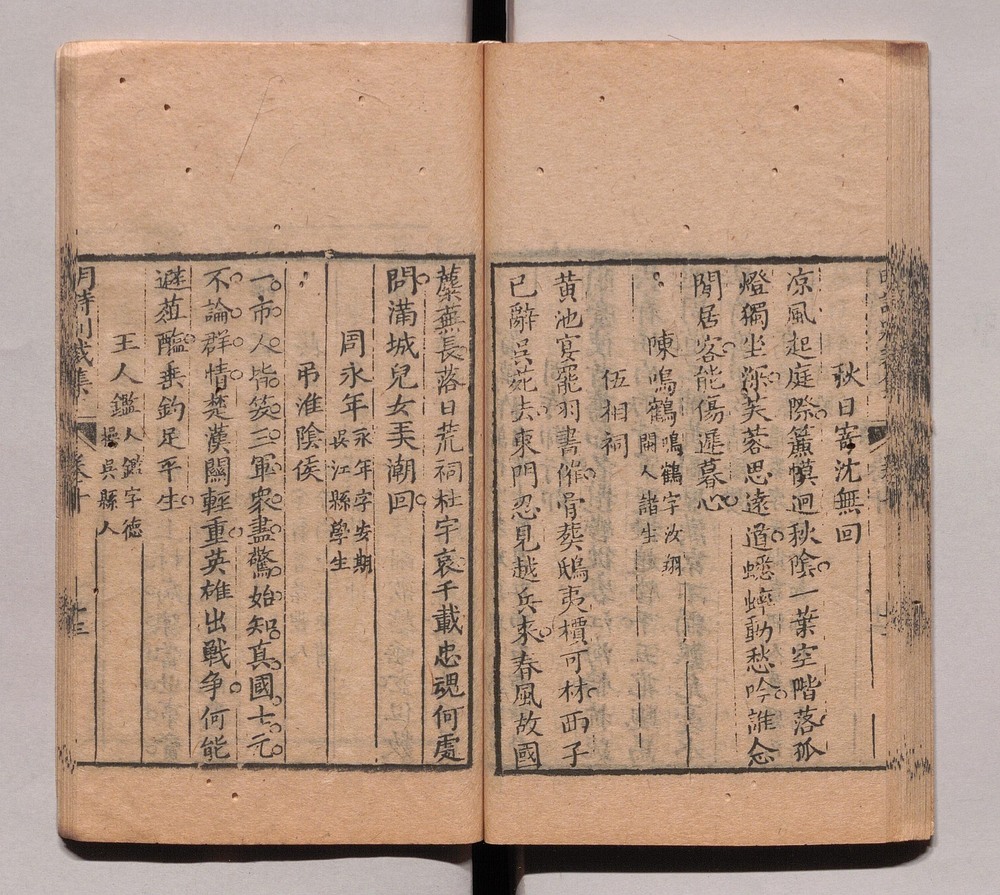 秋日寄沈無回
凉風起庭際簾幙迥秋陰一葉空階落孤
燈獨坐深芙蓉思遠道蟋蟀動愁吟誰念
閒居客能傷遲暮心
陳鳴鶴
鳴鶴字汝翔
閩人諸生
伍相祠
黄池宴罷羽書催骨葬鴟夷檟可材西子
已辭吳苑去東門忍見越兵來春風故國
蘪蕪長落日荒祠杜宇哀千載忠魂何處
問滿城兒女美潮回
周永年
永年字安期
吳江縣學生
弔淮陰侯
一市人皆笑三軍衆盡驚始知真國士元
不論群情楚漢關輕重英雄出戰争何能
避葅醢垂釣足平生
王人鑑
人鑑字德
操吳縣人
明詩 集
卷十
十三